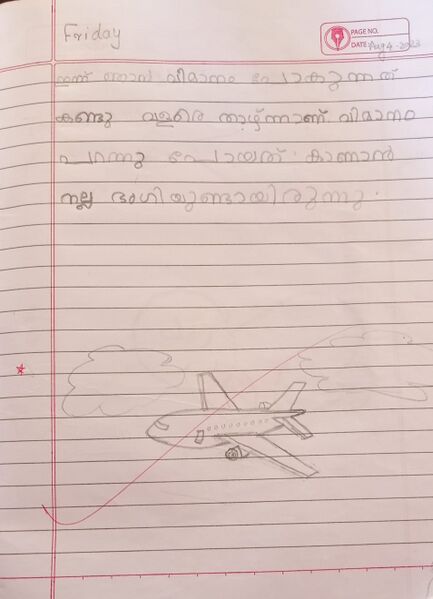 Friday
PAGE NO.
DATE: Aug 4-2023
ഇന്ന് ഞാൻ വിമാനം പോകുന്നത്
കണ്ടു വളരെ താഴ്ന്നാണ് വിമാനം
പറന്നു പോയത്. കാണാൻ
നല്ല ഭംഗിയുണ്ടായിരുന്നു.